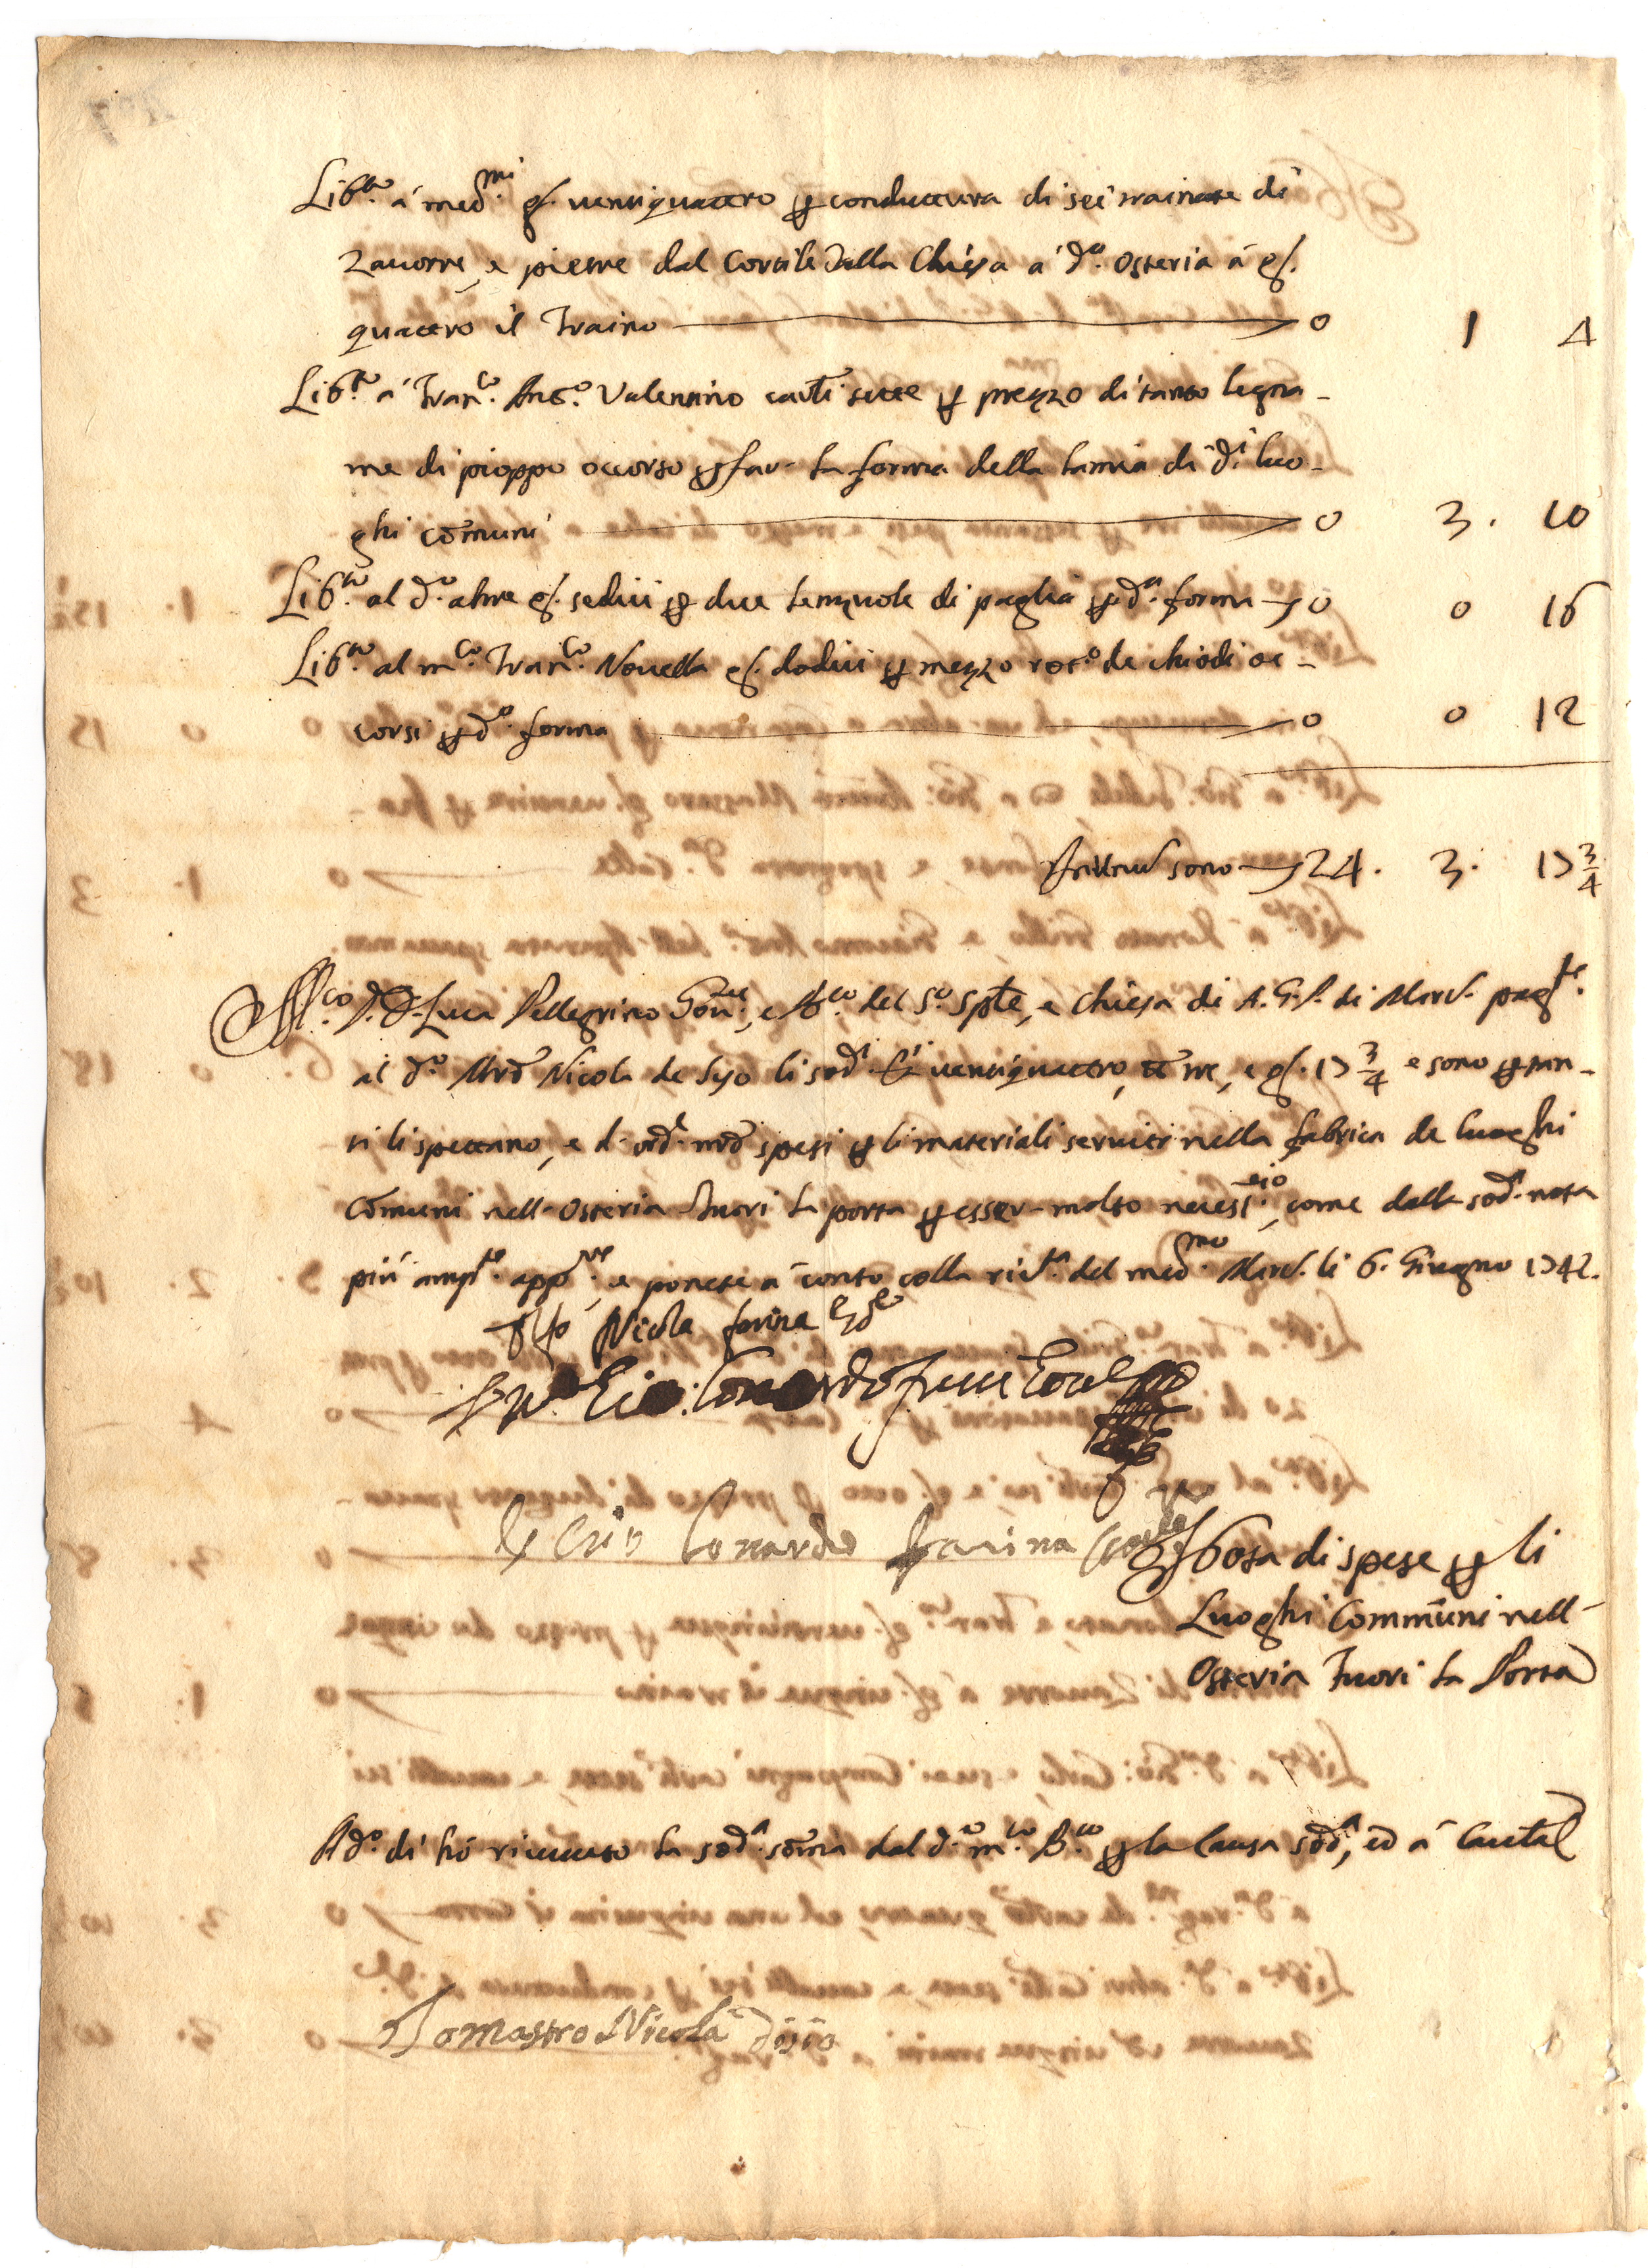 Lib.to á med.mi g. ventiquattro p conduttura di sei trainate di
Zavorre, e pietre dal Cortile della Chiesa a d.a Osteria á g.
quattro il Traino 0 1 4
Lib.to á Fran.co Ant.o Valentino carli sette p prezzo di tanto legna-
me di pioppo occorso p far la forma della lamia di d.i luo-
ghi comuni 0 3. 10
Lib.to al d.o altre g. sedici p due lenzuole di paglia p d.a forma 0 0 16
Lib.to al m.co Fran.co Novella g. dodici p mezzo rot.o de chiodi oc-
corsi p d.a forma 0 0 12
sono 24. 3. 17 3/4
M.co D. Luca Pellegrino Gov.re, e B.co del S.o Sple, e Chiesa di A. G. P. di Mird. pag.te
al d.o Mro Nicola de Syo li sod.i ventiquattro, tt tre, e g. 17 3/4 e sono p tan-
ti li spettano, e d'ord. nrõ spesi p li materiali serviti nella fabrica de luoghi
Comuni nell'Osteria fuori la porta p esser molto necess.rio, come dalla sod.a nota
piú ampl.te app.re, e ponete á conto colla ric.ta del med.mo Mird. li 6. Giugno 1742.
Nicola farina
Lonardo farina
Nota di spese p li
Luoghi Communi nell'
Osteria Fuori la Porta
A d.o dí hó ricevuto la sod.a soma dal d.o m.co B.co p la causa sod.a, ed á Cautel
Io mastro Nicola